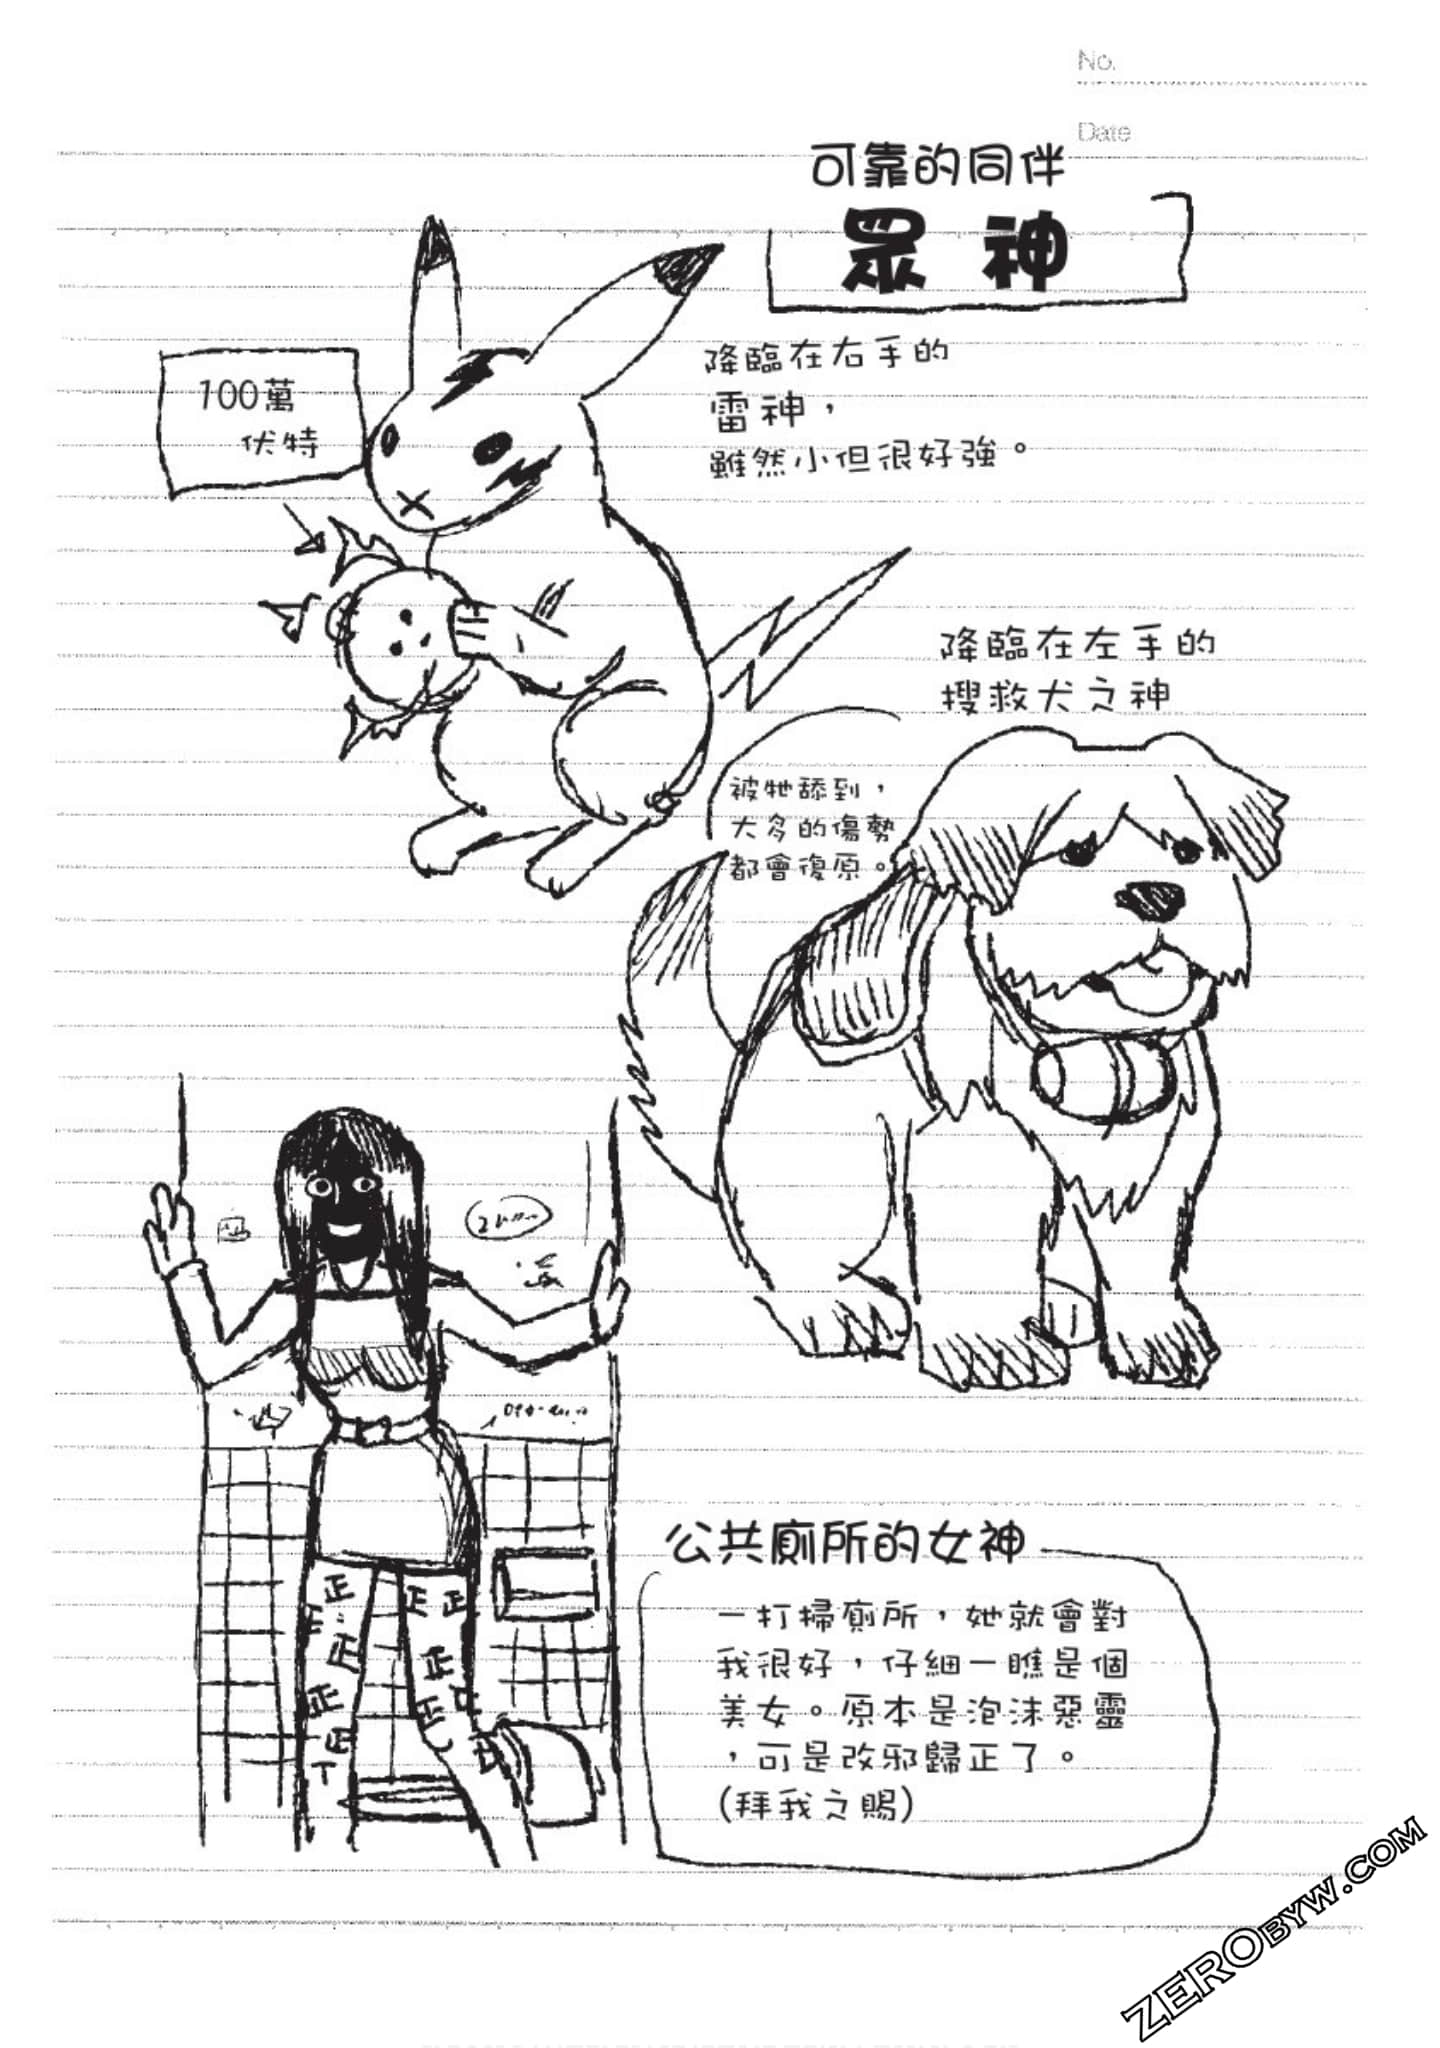 No.
Date
可靠的同伴
眾神
降臨在右手的
雷神，
雖然小但很好強。
100萬
伏特
降臨在左手的
搜救犬之神
被牠舔到，
大多的傷勢
都會復原。
公共廁所的女神
一打掃廁所，她就會對
我很好，仔細一瞧是個
美女。原本是泡沫惡靈
，可是改邪歸正了。
(拜我之賜)
正
正
正
正
正
正
正
正
正
ZEROBYW.COM